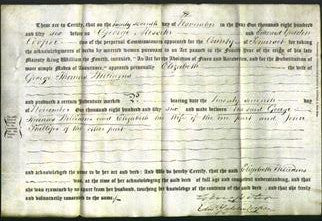 These are to Certify, that on the twenty seventh day of November in the Year One thousand eight hundred
and fifty two before us George and Edward
Cooper two of the perpetual Commissioners appointed for the County of for taking the
acknowledgments of deeds by married women pursuant to an Act passed in the Fourth year of the reign of his late
Majesty King William the Fourth, intituled, "An Act for the Abolition of Fines and Recoveries, and for the Substitution of
more simple Modes of Assurance," appeared personally Elizabeth the wife of
George Thomas Williams
and produced a certain Indenture marked bearing date the twenty seventh day
of November One thousand eight hundred and fifty two and made between the said George
Thomas Williams and Elizabeth his wife of the one part and John
Phillips of the other part
and acknowledged the same to be her act and deed: And we do hereby certify, that the said Elizabeth Williams
was, at the time of her acknowledging the said deed, of full age and competent understanding, and that
she was examined by us apart from her husband, touching her knowledge of the contents of the said deed, and that she freely
and voluntarily consented to the same.